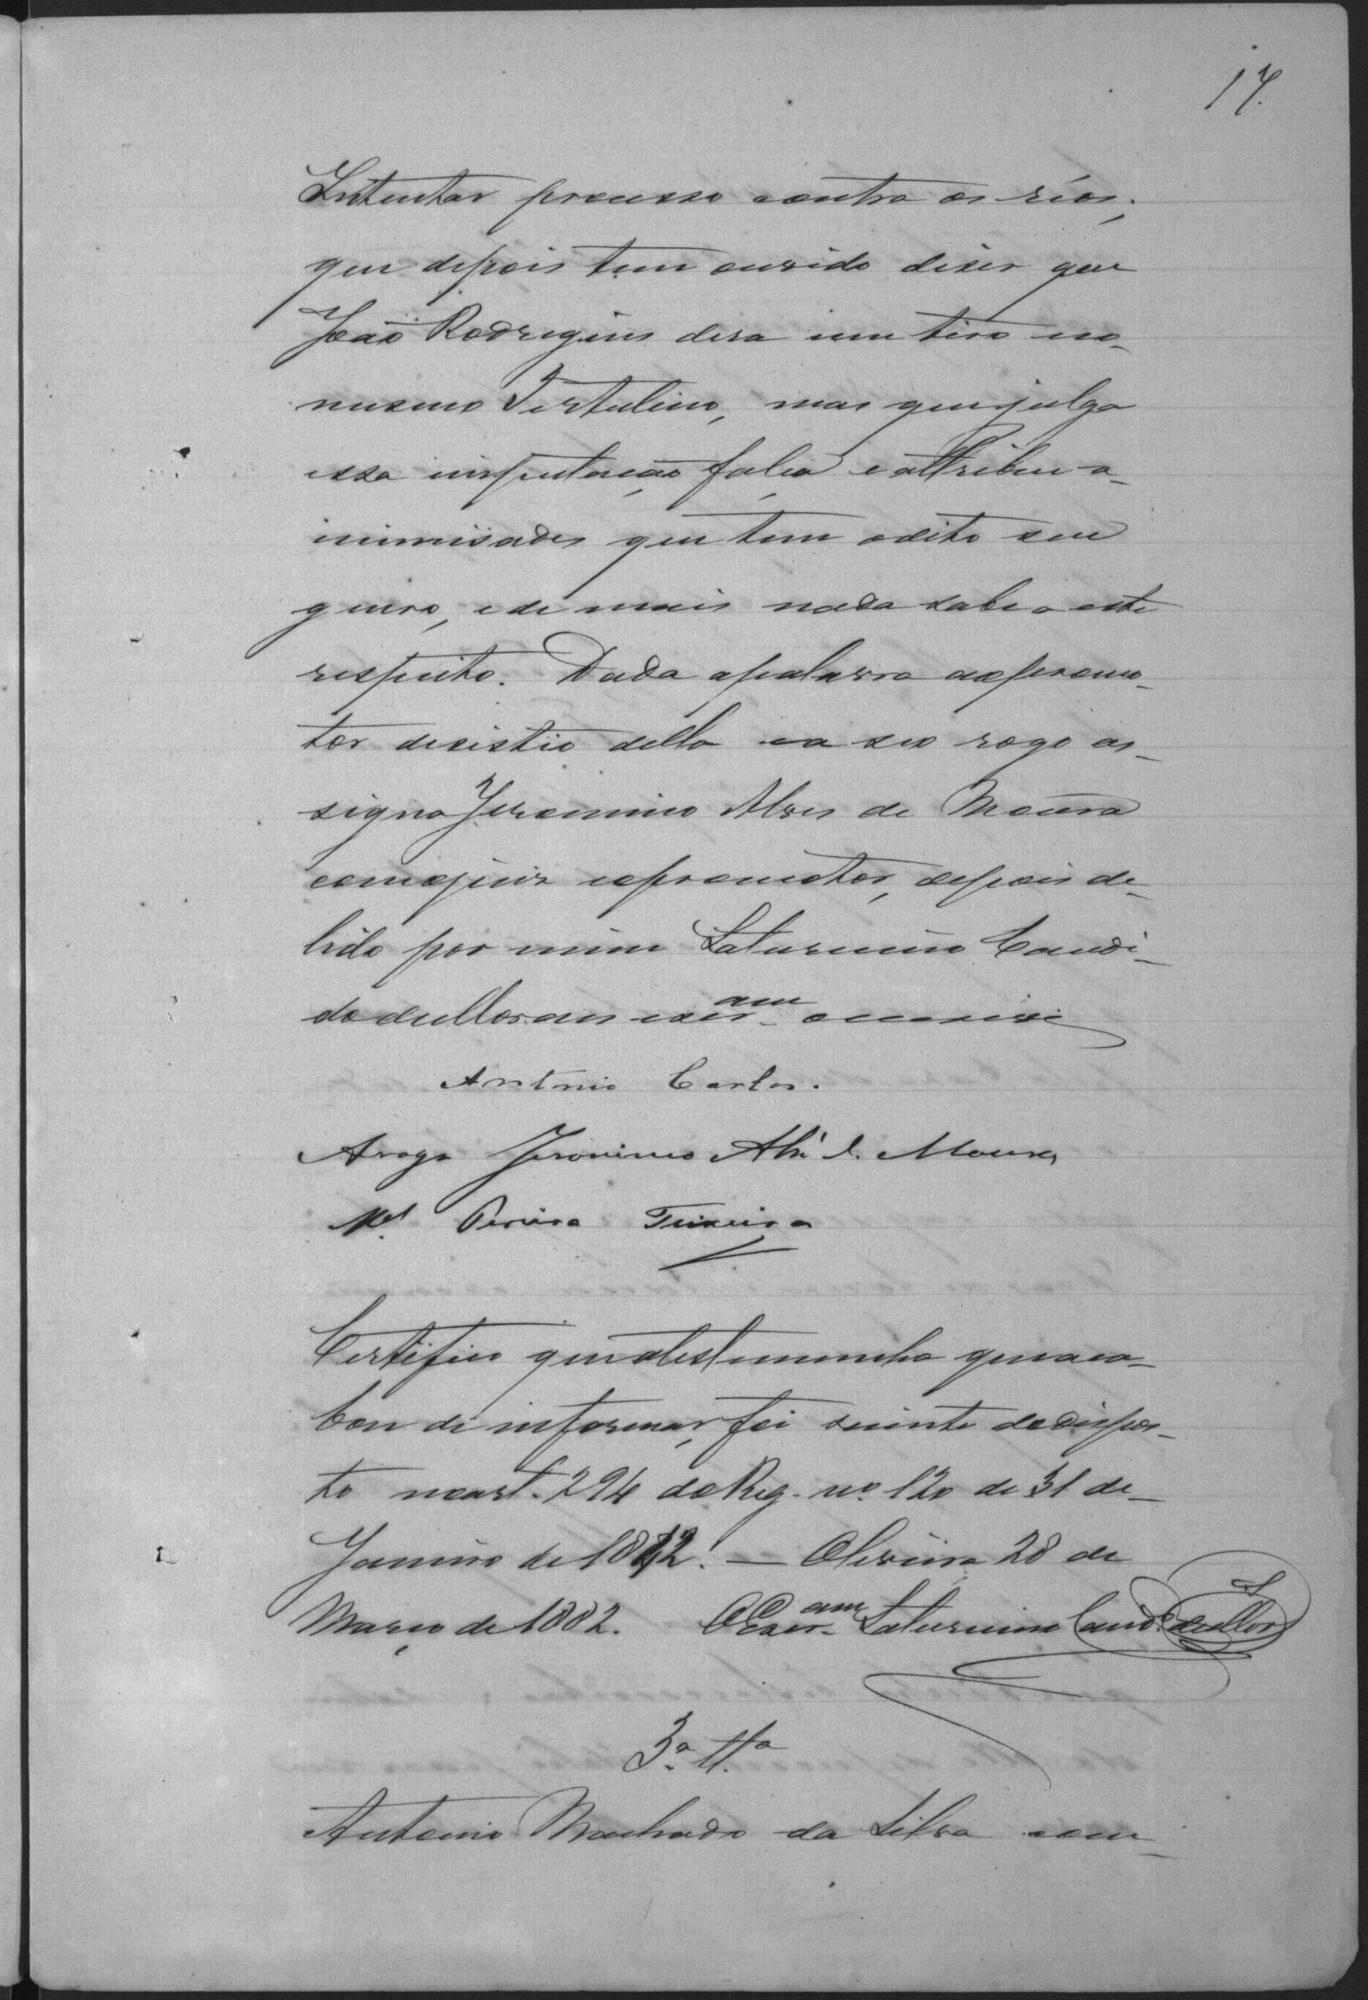 17.
Intentar processo contra os réos;
que depois tem ouvido dizer que
João Rodrigues dera um tiro no
mesmo Tertulino, mas que julga
essa imputação falça e attribue a
inimisades que tem o dito seu
genro, e de mais nada sabe a este
respeito. Dada a palavra ao promo-
tor desistio della e a seo rogo as-
signa Jeronimo Alves de Moura
com o juis e o promotor, depois de
lido por mim Saturnino Candi-
do de Moraes escr.am o escrivi
Antonio Carlos.
Arogo Jeronimo Alz' d. Moura
M.el Pereira Teixeira
Certifico que a testemunha que aca-
bou de informar, foi sciente do dispos-
to no art. 294 do Reg. nº 120 de 31 de
Janeiro de 1842. — Oliveira 28 de
Março de 1882. O Escr.am Saturnino Cand.o de Mor
3.ª Tt.ª
Antonio Machado da Silva com